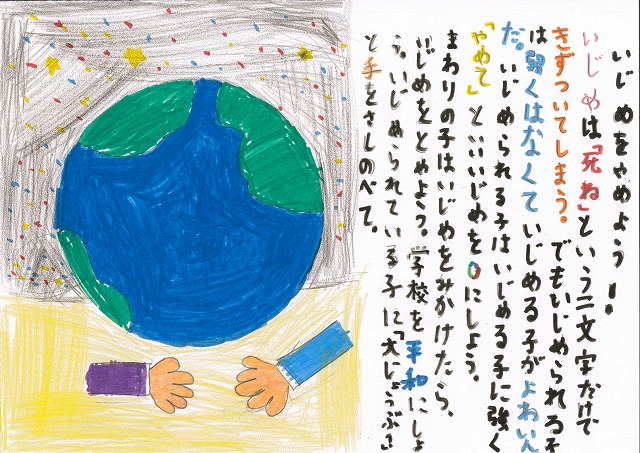 いじめをやめよう!!
いじめは「死ね」という二文字だけで
きずついてしまう。でもいじめられる子
は弱くはなくていじめる子がよわいん
だ。いじめられる子はいじめる子に強く
「やめて」といいいじめを0にしよう。
まわりの子はいじめをみかけたら、
いじめをとめよう。学校を平和にしょ
う。いじめられている子に「大じょうぶ」
と手をさしのべて。